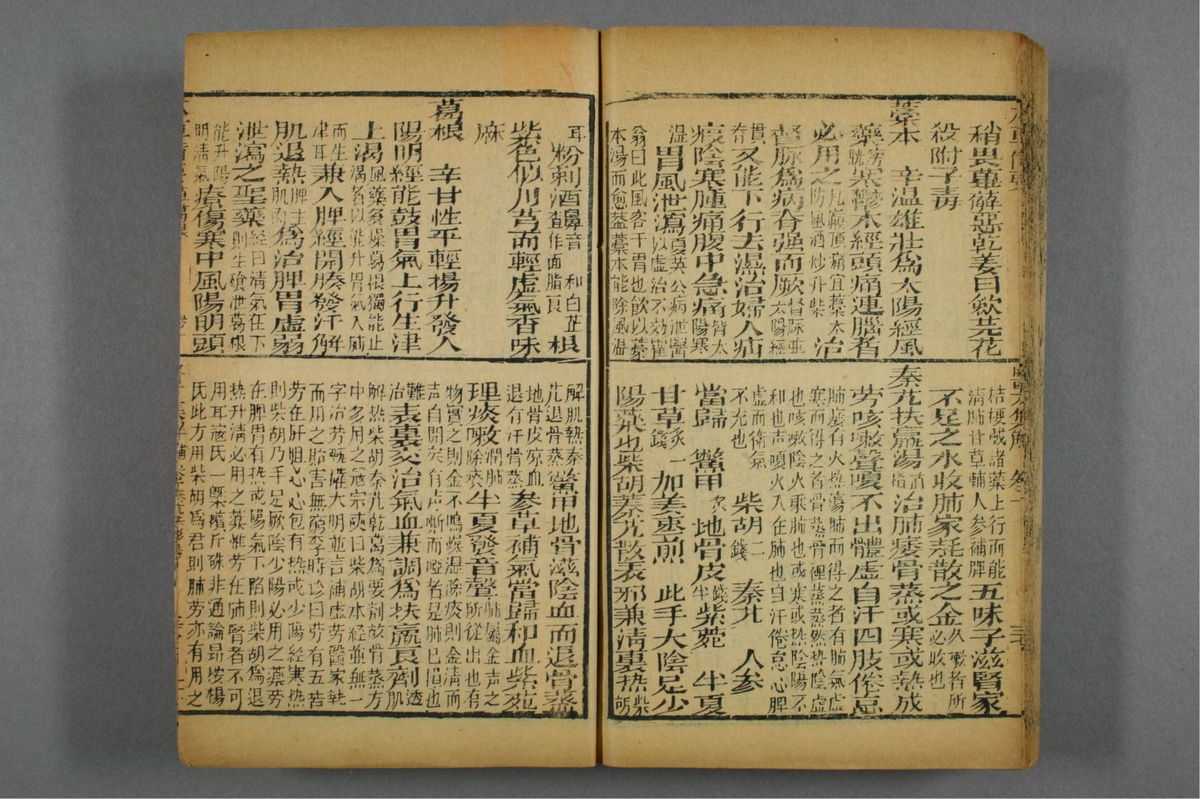 稍畏萆薢惡乾姜曰歛芫花
殺附子毒
藁本 辛温雄壯為太陽經風
藥膀胱寒鬱本經頭痛連腦者
必用之凡巔頂痛宜藁本防風酒炒升柴治
督脈為病脊强而厥督脈並太陽經
貫脊又能下行去濕治婦人疝
瘕陰寒腫痛腹中急痛皆太陽寒
濕胃風泄瀉夏英公病泄醫以虛治不効霍
翁曰此風客于胃也飲以藁
本湯而愈蓋藁本能除風濕
桔梗載諸藥上行而能
清肺甘草輔人參補脾五味子滋腎家
不足之水收肺家耗散之金久嗽者所必收也
秦艽扶羸湯治肺痿骨蒸或寒或熱成
劳咳嗽聲嗄不出體虛自汗四肢倦怠
肺痿有火热蕩肺而得之者有肺氣虛
寒而得之者骨蒸骨裡蒸蒸然热陰虛
也咳嗽火乘肺也或寒或热陰陽不
和也声嗄火入在肺也自汗倦怠心脾
虛而衛氣不充也 柴胡二錢 秦艽 人參
當歸 鱉甲炙 地骨皮錢半 紫菀 半夏
甘草炙一錢 加姜枣煎 此手大陰足少
陽藥也柴胡秦艽散表邪兼清裏热柴胡
耳粉刺酒皶音查作面脂良 和白芷 根
紫色似川芎而輕虛氣香味
麻
葛根 辛甘性平輕揚升發入
陽明經能鼓胃氣上行生津
止渴風藥多燥葛根獨能止渴者以能升胃氣入肺
而生津耳兼入脾經開腠發汗解
肌退熱脾主肌肉為治脾胃虛弱
泄瀉之聖藥經曰清氣在下則生飧泄葛根
能升陽明清氣療傷寒中風陽明頭
解肌熱秦艽退骨蒸鱉甲地骨滋陰血而退骨蒸
地骨皮凉血退有汗骨蒸參草補氣當歸和血紫菀
理痰嗽潤肺除痰半夏發音聲肺屬金声之所從出也有
物實之則金不鳴燥濕除痰則金清而
声自開矣有声嘶而啞者是肺已損也
難治表裏交治氣血兼調為扶羸良劑透肌
解热柴胡秦艽乾葛為要剂故骨蒸方
中多用之寇宗奭曰柴胡本經並無一
字治劳甄權大明並言補虛劳醫家執
而用之貽害無窮李時珍曰劳有五若
劳在肝胆心心包有热或少陽經寒热
則柴胡乃手足厥陰少陽必用之藥劳
在脾胃有热或陽氣下陷則柴胡為退
热升清必用之藥惟劳在肺腎者不可
用耳寇氏一槩擯斥殊非通論昂按楊
氏此方用柴胡為君則肺劳亦有用之